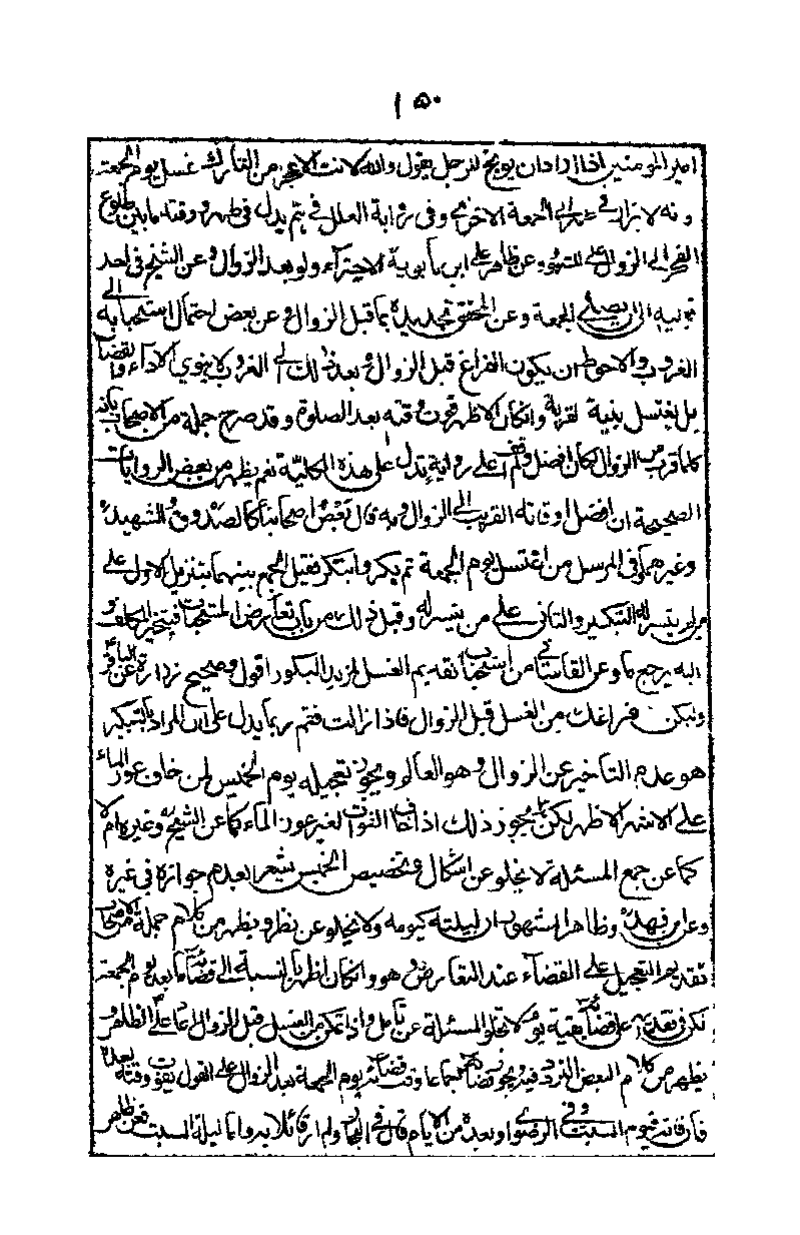 ١٥٠
امير المومنين اذا اراد ان يوبخ الرجل يقول والله لانت الاعجز من التارك غسل يوم الجمعة
و نه لا يزال في الى الجمعة الاخرى وفي رواية العلل في يتم يدل في طهر ووقته ما بين طلوع
الفجر الى الزوال على المشهور وعن ظاهر على ابن بابوية الاجتزاء ولو بعد الزوال وعن الشيخ في احد
قوليه الى ان يصلى الجمعة وعن المحقق تحديده بما قبل الزوال وعن بعض احتمال استحبابه الى
الغروب والاحوط ان يكون الفراغ قبل الزوال وبعد ذلك الى الغروب لا ينوي الاداء والقضاء
بل يغتسل بنية القربة وان كان الاظهر وقته بعد الصلوة وقد صرح جملة من الاصحاب بانه
كلما قرب من الزوال كان افضل ولم اقف على رواية تدل على هذه الكلية نعم يظهر من بعض الروايات
الصحيحة ان افضل اوقاته القريب الى الزوال وبه قال بعض اصحابنا كالصدوق والشهيد
وغيرهما وفي المرسل من اغتسل يوم الجمعة ثم بكر وابتكر فقيل الجمع بينهما بتنزيل الاول على
من لم يتيسر له التبكير والثاني على من يتيسر له وقيل ذلك من باب تعارض المستحبات فيتخير المكلف و
اليه يرجع ما عن القاساني من استحباب تقديم الغسل لمريد البكور اقول وصحيح زرارة عن الباقر
وليكن فراغك من الغسل قبل الزوال فاذا زالت فقم ربما يدل على ان المراد بالتبكير
هو عدم التأخير عن الزوال وهو العالم ويجوز تعجيله يوم الخميس لمن خاف عوز الماء
على الاشهر الاظهر لكن هل يجوز ذلك اذا خاف الفوات لغير عوز الماء كما عن الشيخ وغيره ام لا
كما عن جمع المسئلة لا يخلو عن اشكال وتخصيص الخميس يشعر بعدم جوازه في غيره
وعن ابن فهد وظاهر المشهور ان ليلته كيومه ولا يخلو عن نظر ويظهر من كلام جملة من الاصحاب
تقديم التعجيل على القضآء عند التعارض وهو وان كان اظهر بالنسبة الى قضائه ما بعد يوم الجمعة
لكن في تقديمه على قضائه بقية يومه لا تخلو المسئلة عن تأمل واذا تمكن من الغسل قبل الزوال اعاد على الظاهر و
يظهر من كلام البعض التردد فيه ويجوز قضائه اجماعا ووقت قضائه يوم الجمعة بعد الزوال على القول بفوت وقته بعده
فان فاته فيوم السبت وفي الرضوي او بعده من الايام قال في البحار ولم ار قائلا به واما ليلة السبت فعن ظاهر